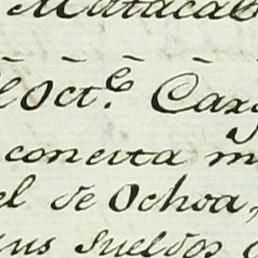 Matacab
Oct.e Carg
concita m
el de Ochoa,
sus sueldos